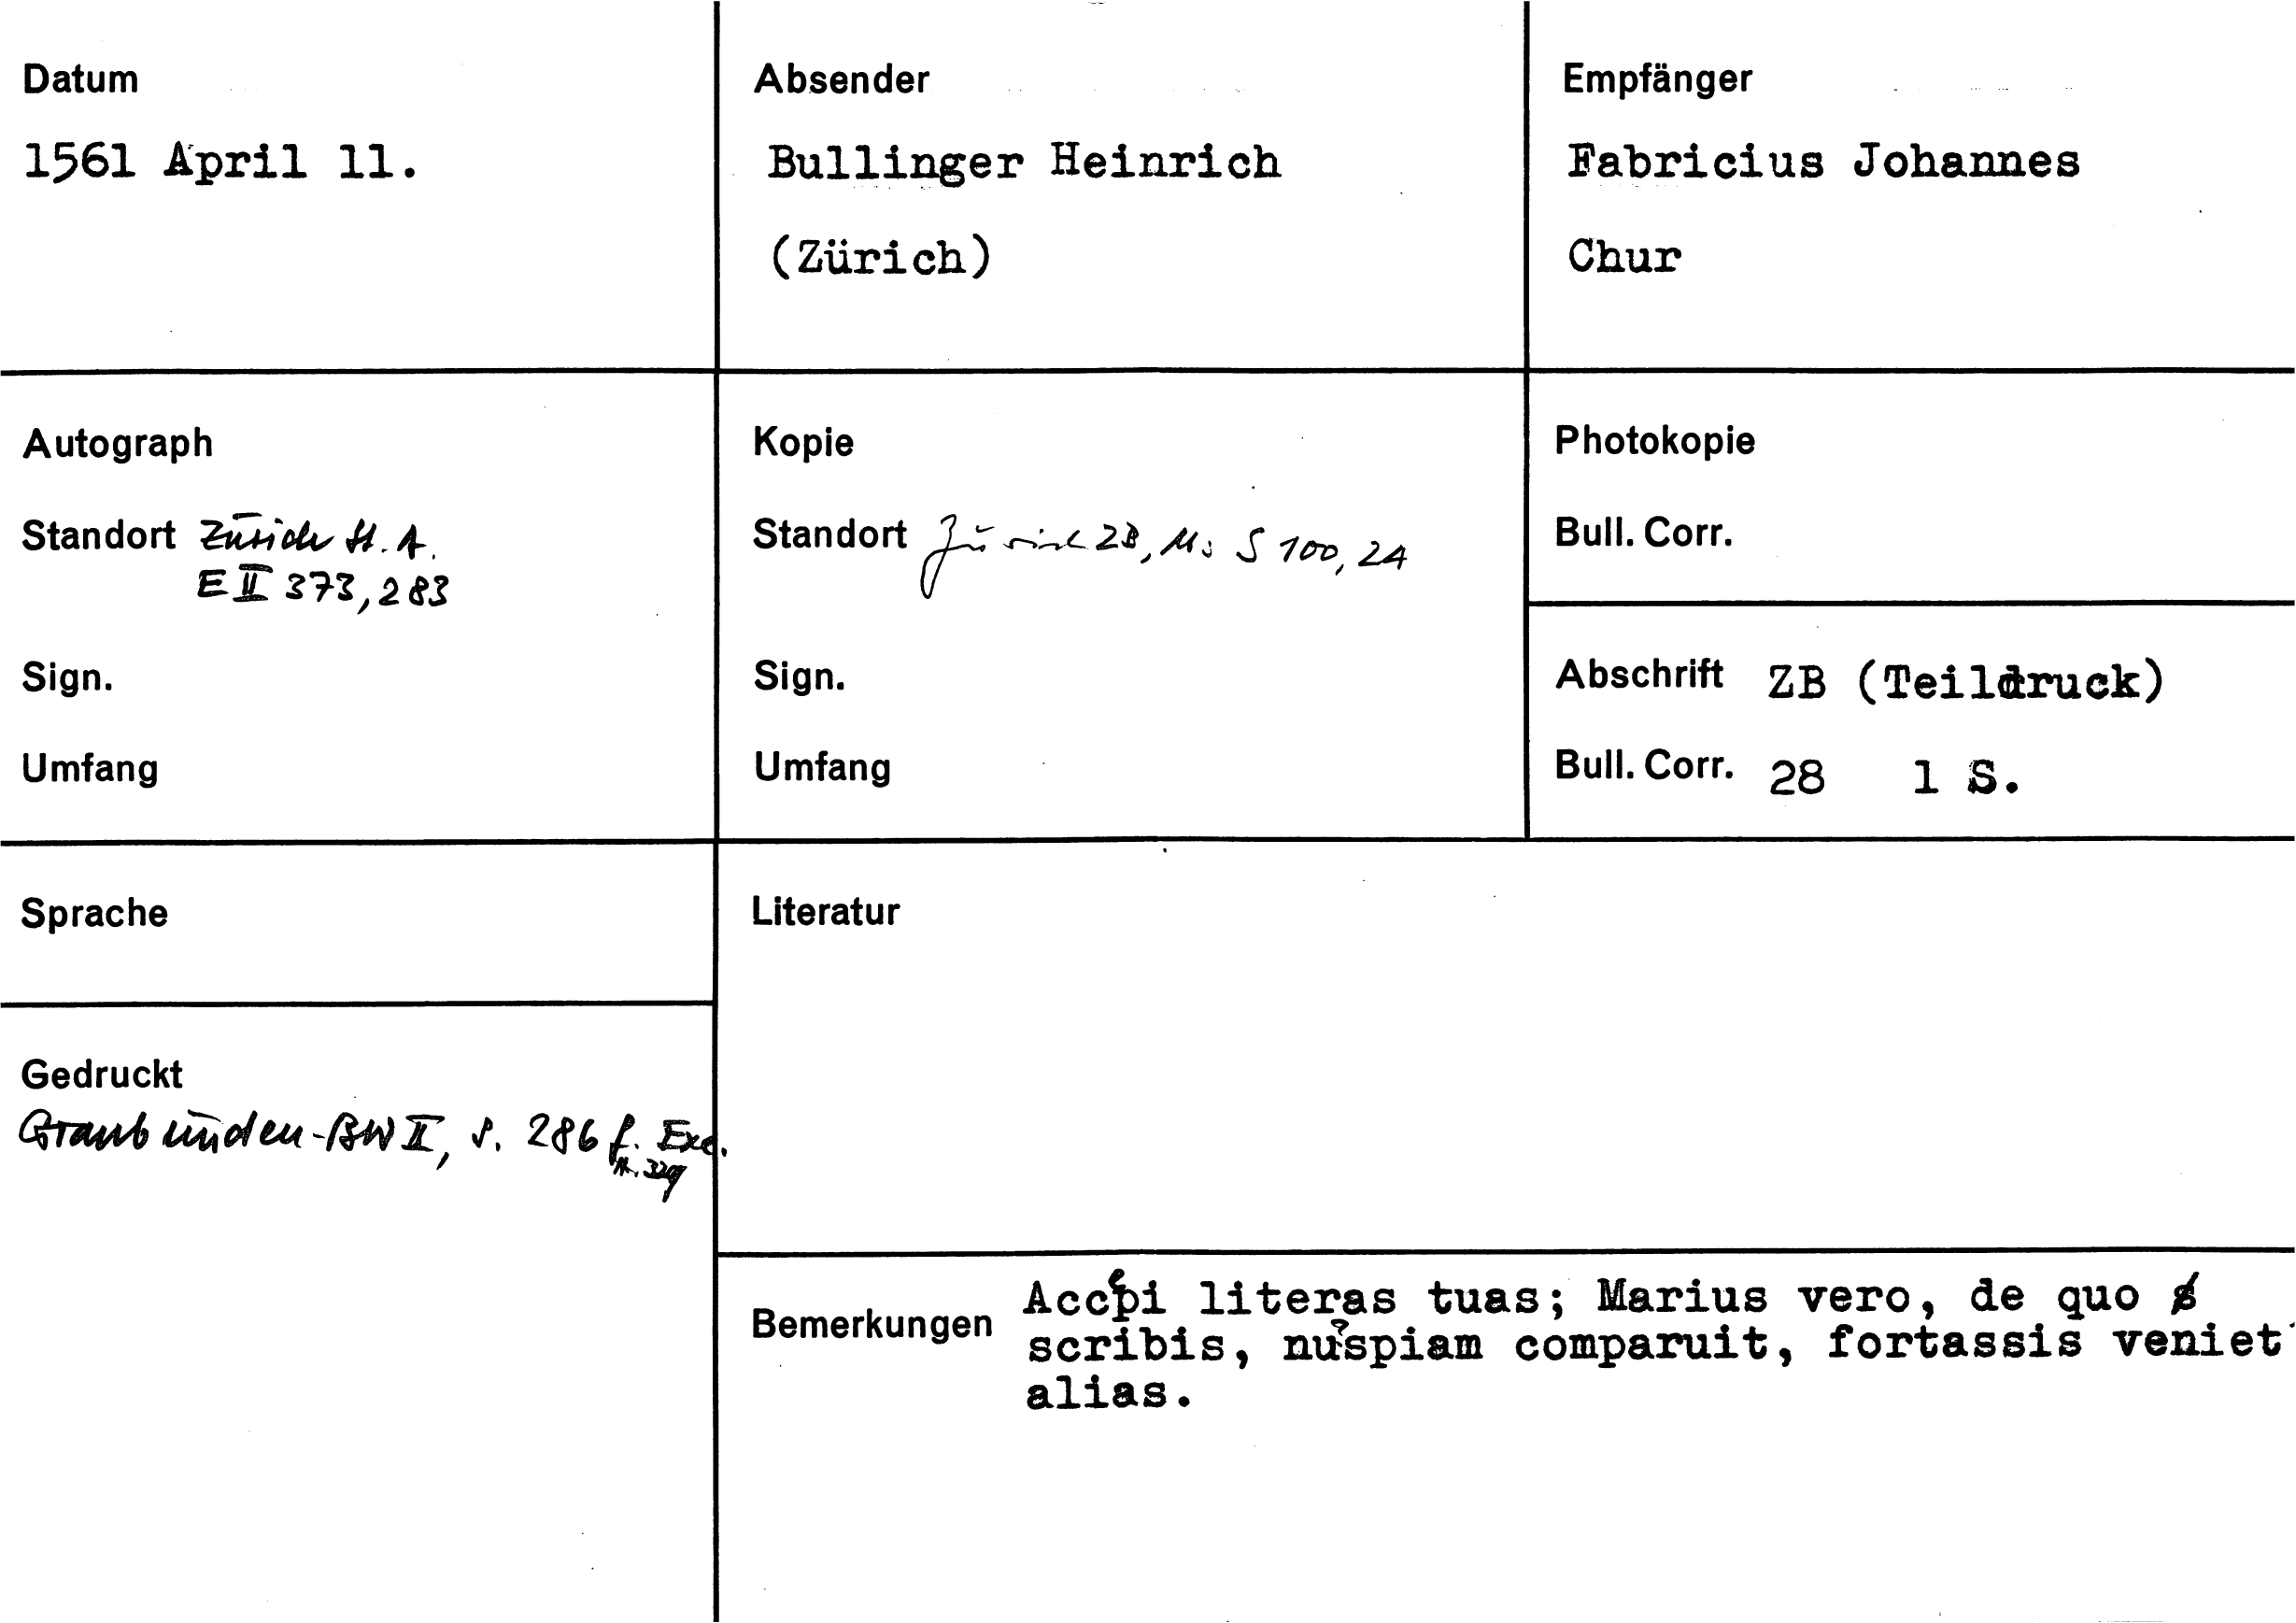 Datum
1561 April 11.
Absender
Bullinger Heinrich
(Zürich)
Empfänger
Fabricius Johannes
Chur
Autograph
Standort Zürich St. A.
E II 373, 283
Sign.
Umfang
Kopie
Standort Zürich ZB, Ms S 100, 24
Sign.
Umfang
Photokopie
Bull. Corr.
Abschrift ZB (Teildruck)
Bull. Corr. 28 1 S.
Sprache
Gedruckt
Graubünden-BW II, S. 286 f. Exc.
Literatur
Bemerkungen
Accepi literas tuas; Marius vero, de quo
scribis, nuspiam comparuit, fortassis veniet
alias.